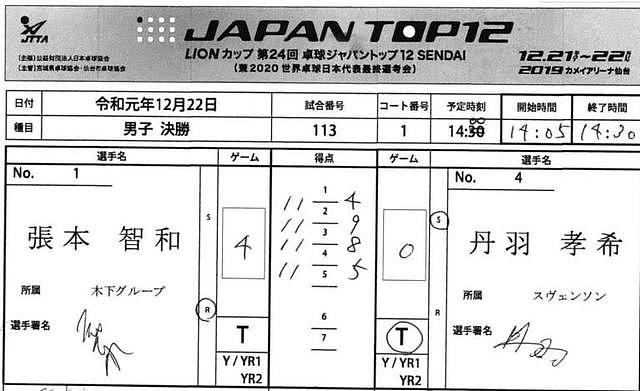 JTTA
JAPAN TOP12
LIONカップ 第24回 卓球ジャパントップ12 SENDAI
(兼2020世界卓球日本代表最終選考会)
(主催)公益財団法人日本卓球協会
(主管)宮城県卓球協会・仙台市卓球協会
12.21土〜22日
2019 カメイアリーナ仙台
日付 令和元年12月22日 試合番号 コート番号 予定時刻 開始時間 終了時間
種目 男子 決勝 113 1 14:30 00 14:05 14:30
選手名 ゲーム 得点 ゲーム 選手名
No. 1
No. 4
張本 智和
丹羽 孝希
S
S
4
0
1
11 4
2
11 9
3
11 8
4
11 5
5
6
7
所属 木下グループ
所属 スヴェンソン
R
R
選手署名
選手署名
T
T
Y / YR1
Y / YR1
YR2
YR2